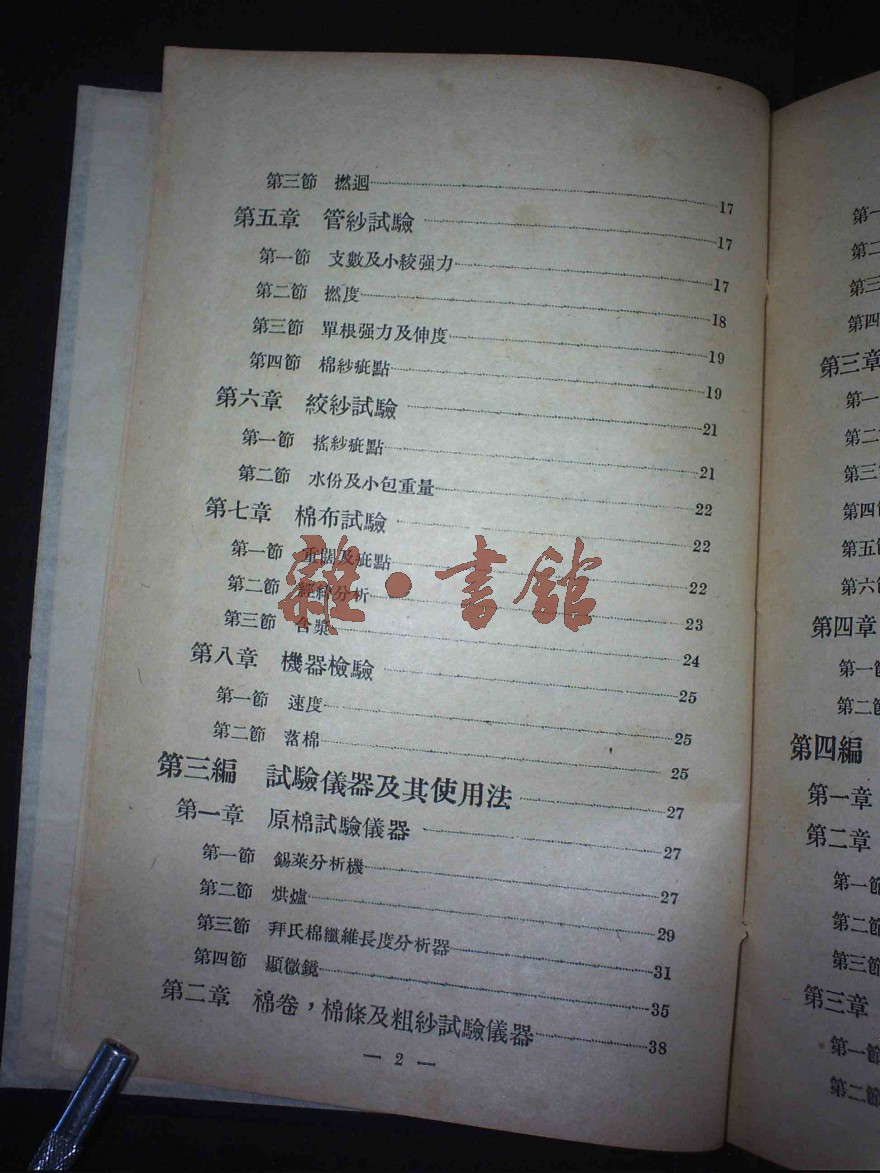 第三節 撚迴 17
第五章 管紗試驗 17
第一節 支數及小絞强力 17
第二節 撚度 18
第三節 單根强力及伸度 19
第四節 棉紗疵點 19
第六章 絞紗試驗 21
第一節 搖紗疵點 21
第二節 水份及小包重量 22
第七章 棉布試驗 22
第一節 重闊及疵點 22
第二節 經緯分析 23
第三節 含漿 24
第八章 機器檢驗 25
第一節 速度 25
第二節 落棉 25
第三編 試驗儀器及其使用法 27
第一章 原棉試驗儀器 27
第一節 錫萊分析機 27
第二節 烘爐 29
第三節 拜氏棉纖維長度分析器 31
第四節 顯微鏡 35
第二章 棉卷，棉條及粗紗試驗儀器 38
— 2 —
雜·書館
第一
第二
第三
第四
第三章
第一
第二
第三
第四
第五
第六
第四章
第一
第二
第四編
第一章
第二章
第一節
第二節
第三節
第三章
第一節
第二節